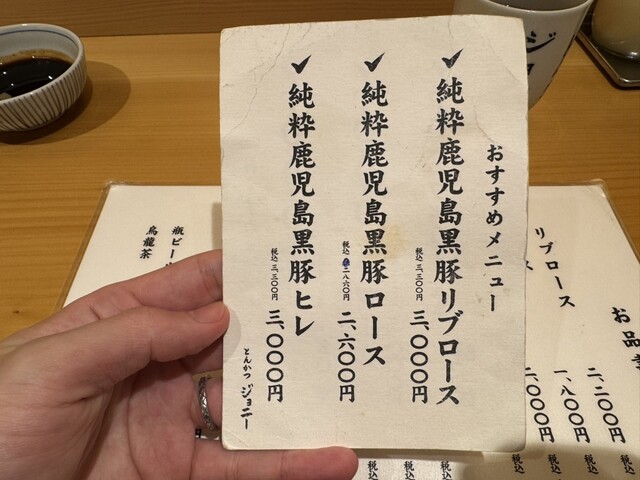 おすすめメニュー
✓純粋鹿児島黒豚リブロース
三、〇〇〇円
税込 三、三〇〇円
✓純粋鹿児島黒豚ロース
二、六〇〇円
税込 二、八六〇円
✓純粋鹿児島黒豚ヒレ
三、〇〇〇円
税込 三、三〇〇円
とんかつ ジョニー
お品
リブロース
二、二〇〇円
一、八〇〇円
二、〇〇〇円
税込
税込
税込
税込
税込
瓶ビー
烏龍茶
ジョ